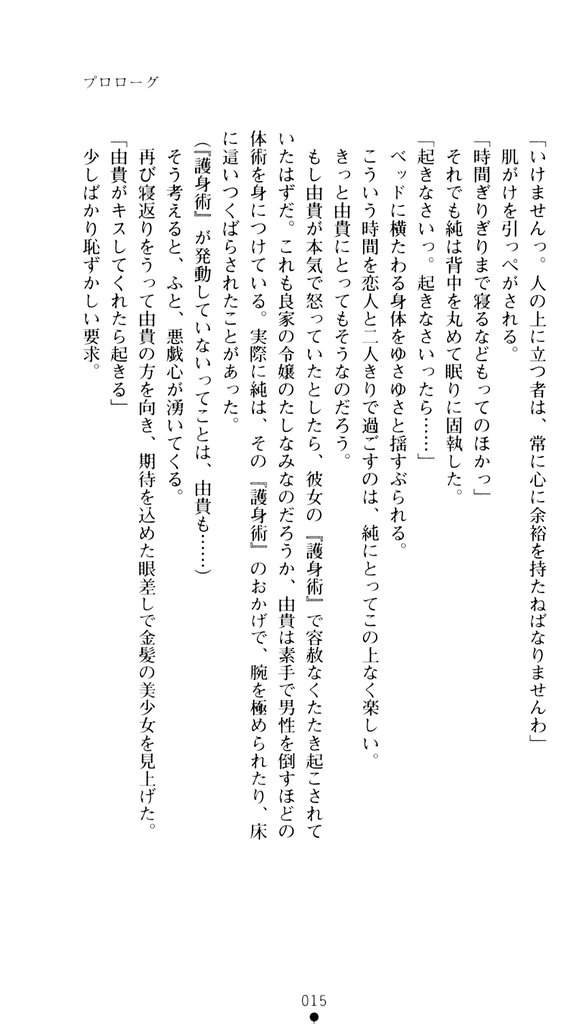 プロローグ
「いけませんっ。人の上に立つ者は、常に心に余裕を持たねばなりませんわ」
肌がけを引っぺがされる。
「時間ぎりぎりまで寝るなどもってのほかっ」
それでも純は背中を丸めて眠りに固執した。
「起きなさいっ。起きなさいったら……」
ベッドに横たわる身体をゆさゆさと揺すぶられる。
こういう時間を恋人と二人きりで過ごすのは、純にとってこの上なく楽しい。
きっと由貴にとってもそうなのだろう。
もし由貴が本気で怒っていたとしたら、彼女の『護身術』で容赦なくたたき起こされて
いたはずだ。これも良家の令嬢のたしなみなのだろうか、由貴は素手で男性を倒すほどの
体術を身につけている。実際に純は、その『護身術』のおかげで、腕を極められたり、床
に這いつくばらされたことがあった。
（『護身術』が発動していないってことは、由貴も……）
そう考えると、ふと、悪戯心が湧いてくる。
再び寝返りをうって由貴の方を向き、期待を込めた眼差しで金髪の美少女を見上げた。
「由貴がキスしてくれたら起きる」
少しばかり恥ずかしい要求。
015